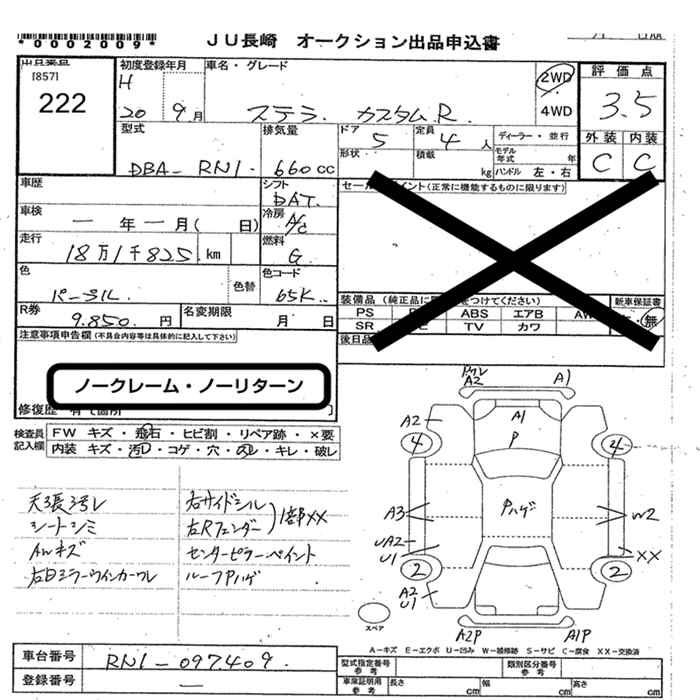 *0002009*
JU長崎 オークション出品申込書
[857]
222
初度登録年月
H
20 9月
車名・グレード
ステラ カスタムR.
2WD
4WD
評価点
3.5
外装 内装
C C
型式
DBA- RN1.
排気量
660cc
ドア 5
定員 4 人
形状
積載 kg
ディーラー・並行
モデル年式 年
ハンドル 左・右
車歴
シフト
DAT.
車検
― 年 ― 月( 日)
冷房
A/C
走行
18万1千825 km
燃料
G
色
パープル
色替
色コード
65K
R券
9.850 円
名変期限
月 日
イント(正常に機能するものに限ります)
装備品(純正品に つけてください)
新車保証書
PS ABS エアB AW
SR TV カワ
無
後日品
注意事項申告欄(不具合内容等は具体的に記入して下さい)
ノークレーム・ノーリターン
修復歴 有[箇所 ]
検査員記入欄
FW キズ・飛石・ヒビ割・リペア跡・×要
内装 キズ・汚レ・コゲ・穴・スレ・キレ・破レ
天張ヨゴレ
シートシミ
AWキズ
右Dミラーウインカーワレ
右サイドシル
左Rフェンダー
1部XX
センターピラーペイント
ルーフPハゲ
ワレ
A2
A1
A2
A1
P
4
4
Pハゲ
A3
W2
UA2
U1
XX
2
2
A2
U1
スペア
A2P
A1P
A-キズ E-エクボ U-凹み W-補修跡 S-サビ C-腐食 XX-交換済
車台番号
RN1-097409.
登録番号
―
型式指定番号
参考
類別区分番号
参考
車庫証明用
参考
長さ cm
幅 cm
高さ cm